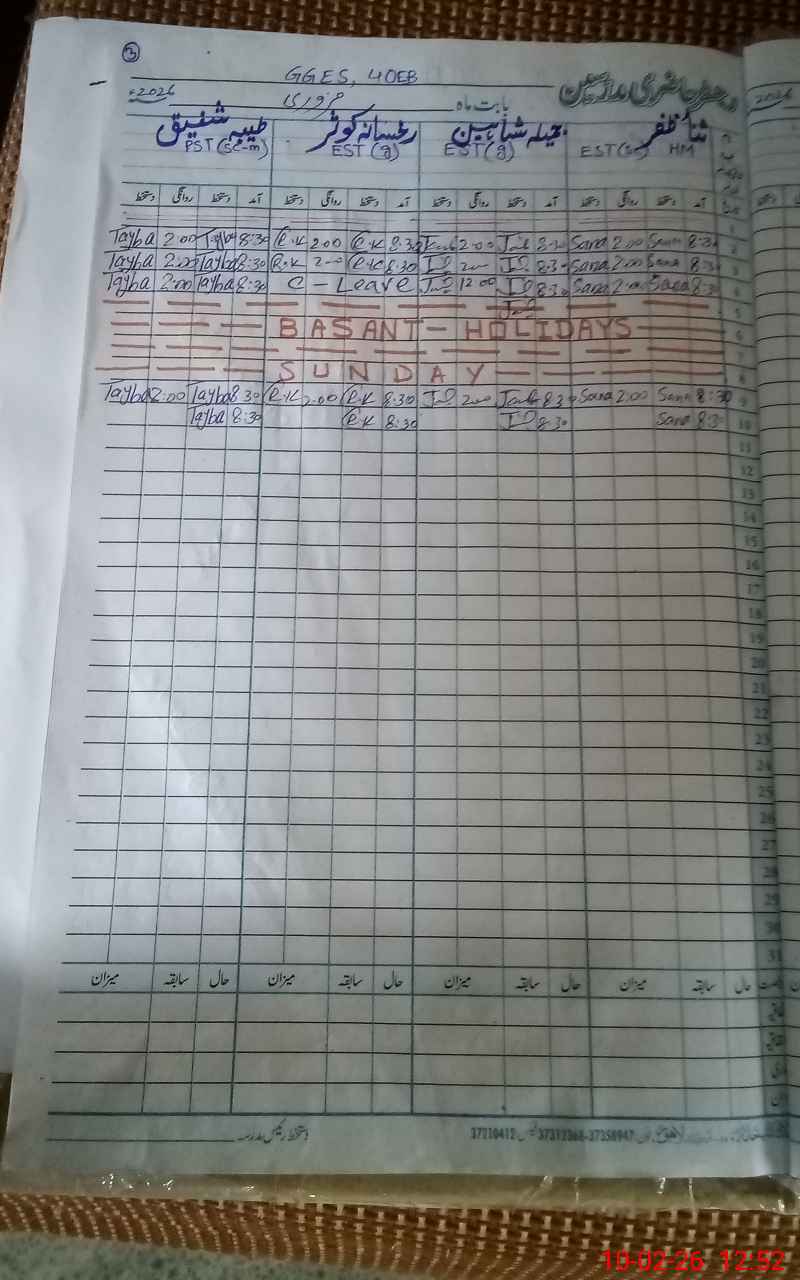 3
GGES, 40EB
رجسٹر حاضری مدرسین
بابت ماہ فروری 2026ء
2026
ثنا ظفر جمیلہ شاہین رخسانہ کوثر طیبہ شفیق
EST(sc) HM EST(g) EST(g) PST(sc-m)
آمد دستخط روانگی دستخط آمد دستخط روانگی دستخط آمد دستخط روانگی دستخط آمد دستخط روانگی دستخط
1
Tayba 2:00 Tayba 8:30 R.K 2:00 R.K 8:30 2:00 8:30 Sana 2:00 Sana 8:30 2
Tayba 2:00 Tayba 8:30 R.K 2:00 R.K 8:30 2:00 8:30 Sana 2:00 Sana 8:30 3
Tayba 2:00 Tayba 8:30 C - Leave 12:00 8:30 Sana 2:00 Sana 8:30 4
5
BASANT - HOLIDAYS 6
7
SUNDAY 8
Tayba 2:00 Tayba 8:30 R.K 2:00 R.K 8:30 2:00 8:30 Sana 2:00 Sana 8:30 9
Tayba 8:30 R.K 8:30 8:30 Sana 8:30 10
11
12
13
14
15
16
17
18
19
20
21
22
23
24
25
26
27
28
29
30
31
حال سابقہ میزان حال سابقہ میزان حال سابقہ میزان حال سابقہ میزان
دستخط رئیس مدرسہ
37210412 37312368-37358947
10-02-26 12:52